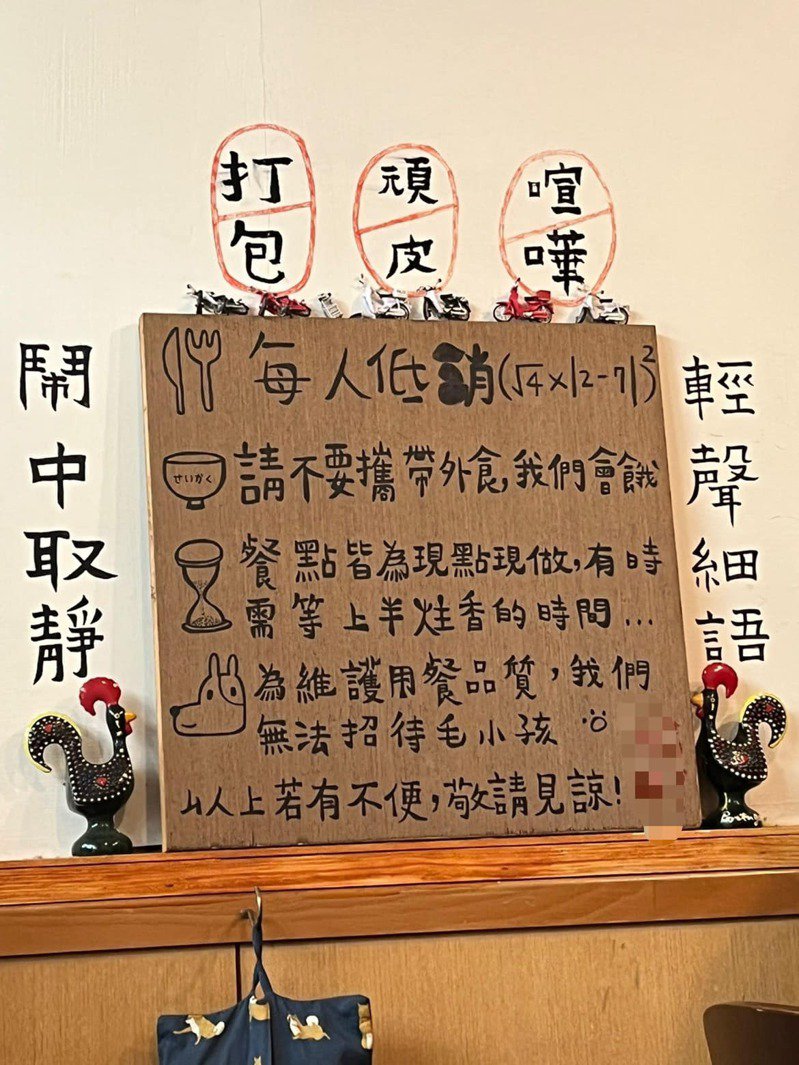 打包
頑皮
喧嘩
鬧中取靜
每人低銷(√4×|2-7|)²
せいかく
請不要攜帶外食,我們會餓
餐點皆為現點現做,有時
需等上半炷香的時間...
為維護用餐品質,我們
無法招待毛小孩
以上若有不便,敬請見諒!
輕聲細語